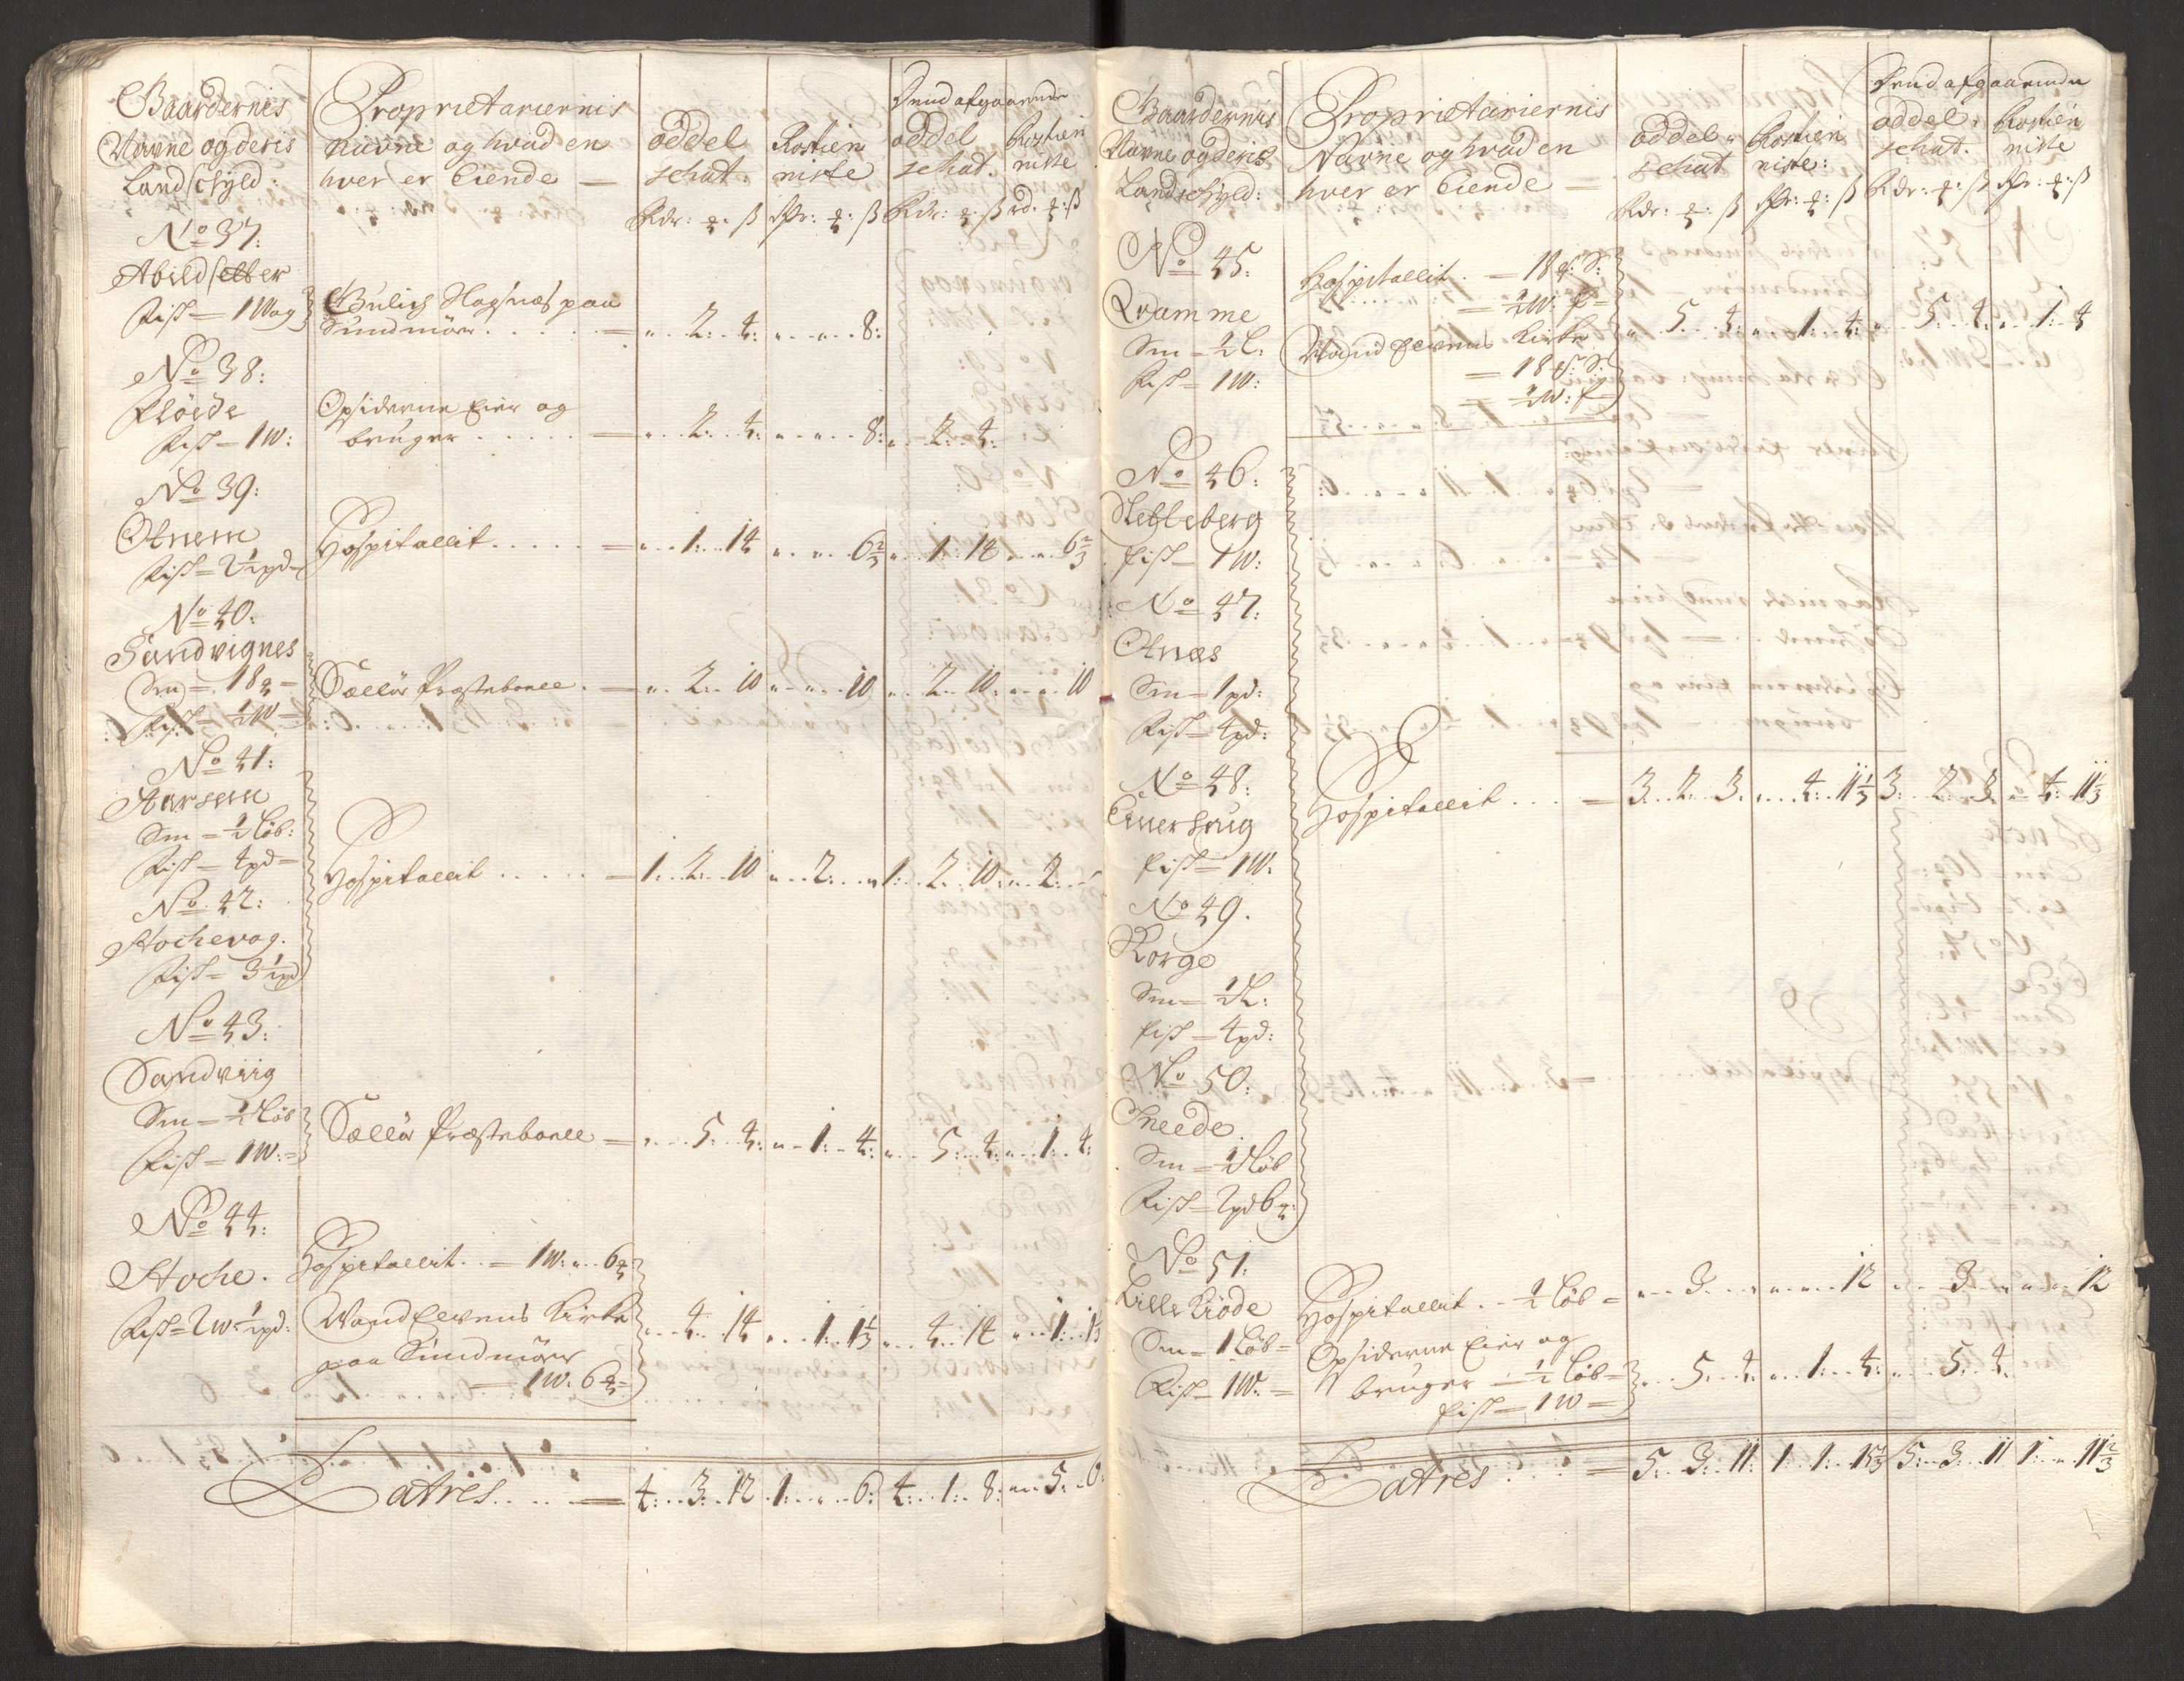 Gaardernis
Navne og deris
Landschyld:
Proprietariernis
navne og hvad en
hver er Eiende —
oddel
schat.
Rostien
niste
Irud afgaaende
oddel
schat.
Rostien
niste
Rdr: ß
ß
Rdr: ß
rd. ß
No 37:
Abildsetter
Fisk = 1 Wog
Hagsnæs paa
Sundmöer . . . . . = „ . 2 . 4: „ . „ . 8:
No 38:
Flöede
Fisk = 1 W:
Opsiderne Eier og
bruger . . . . . = „ . 2 . 4: „ . „ . 8: „ . 2 . 4:
No 39:
Otnem
Fisk = 2½ pd
Hospitallit . . . . . = „ . 1 . 14 „ . „ . 6 2/3 „ . 1 . 14 „ . „ . 6 2/3
No 40:
Sandvignes
Sm = 18
Fisk = ½ W =
Sælløs Præstebolle . = „ . 2 . 10 „ . „ . 10 „ . 2 . 10 „ . „ . 10
No 41:
Aarsem
Sm = ½ Løb:
Fisk = 4 pd =
Hospitallit . . . . . = 1 . 2 . 10 „ . 2 . „ 1 . 2 . 10 „ . 2 . „
No 42:
Stochevog.
Fisk = 3½ pd
No 43:
Sandviig
Sm = ½ Løb
Fisk = 1 W: =
Sælløs Præstebolle = „ . 5 . 4: „ . 1 . 4: „ . 5 . 4: „ . 1 . 4:
No 44:
Stoche.
Fisk = 2 W ½ pd:
Hospitallit . . = 1 W: „ . 6
Wandelvens Kirke
paa Sundmöer
= 1 W. 6
„ . 4 . 14 „ . 1 . 1 1/3 „ . 4 . 14 „ . 1 . 1 1/3
Latris . . . . = 4: . 3 . 12 . 1: . „ . 6: 4: . 1: . 8: „ . 5 . 0:
Gaardernis
Navne og deris
Landschyld:
Proprietariernis
Navne og hvad en
hver er Eiende —
oddel
schat
Rostien
niste:
Irud afgaaende
oddel
schat.
Rostien
niste
Rdr: ß
ß
Rdr: ß
ß
No 45:
Qvamme
Sm = ½ L:
Fisk = 1 W:
Hospitallit . = 18
= ½ W. f
Wandelvens Kirke
= 18
= ½ W: f
„ 5 . 4: „ . 1 . 4: „ . 5 . 4: „ . 1 . 4
No 46:
Hetleberg
Fisk = 1 W:
No 47:
Otnæs
Sm = 1 pd:
Fisk = 4 pd:
No 48:
Einerhaug
Fisk = 1 W.
Hospitallit . . . = 3 . 2 . 3 . „ . 4 . 11 1/3 3: . 2 . 3 „ . 4: 11 1/3
No 49.
Korge
Sm = ½ L:
Fisk = 4 pd:
No 50:
Sneede.
Sm = ½ Løb
Fisk = 2 pd 6
No 51:
Lille Eide
Sm = 1 Løb =
Fisk = 1 W. =
Hospitallit . . ½ Løb = „ . 3 . „ „ . „ . 12 „ . 3 . „ „ . „ . 12
Opsiderne Eier og
bruger = ½ Løb =
fisk = 1 W =
„ . 5 . 4 „ . 1 . 4: „ . 5 . 4.
Latris . . . = 5 . 3 . 11: 1 . 1 . 15 1/3 5: . 3 . 11 1: . „ 11 2/3